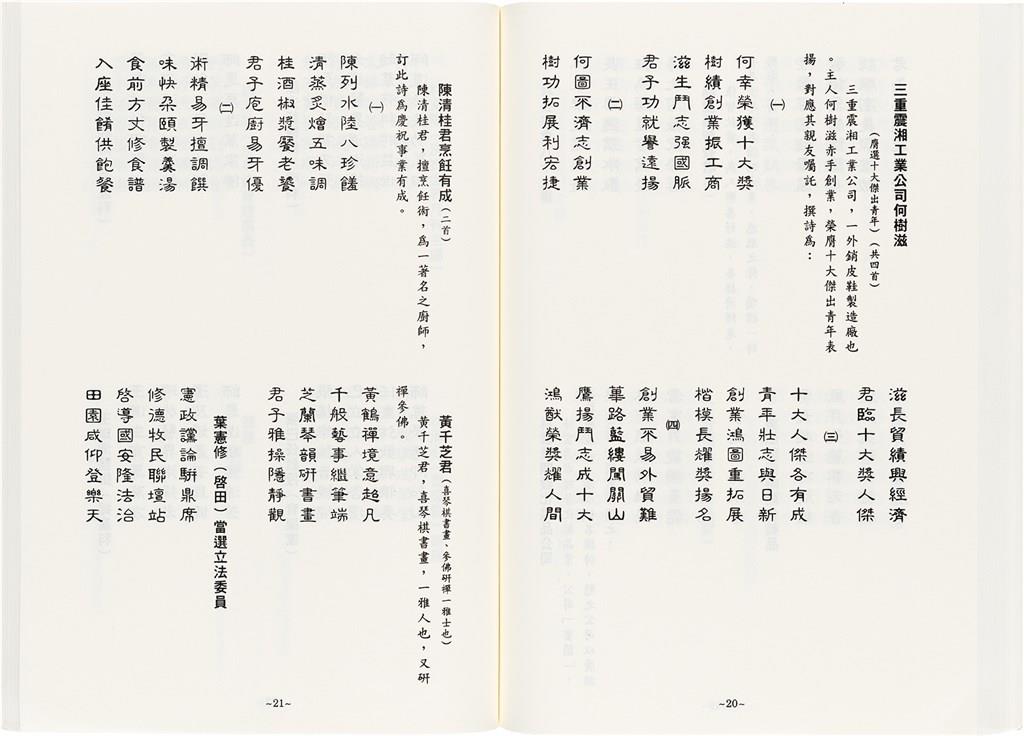 三重震湘工業公司何樹滋
（膺選十大傑出青年）（共四首）
三重震湘工業公司，一外銷皮鞋製造廠也
。主人何樹滋赤手創業，榮膺十大傑出青年表
揚，對應其親友囑託，撰詩爲：
㈠
何幸榮獲十大獎
樹績創業振工商
滋生鬥志强國脈
君子功就譽遠揚
㈡
何圖不濟志創業
樹功拓展利宏捷
滋長貿績興經濟
君臨十大獎人傑
㈢
十大人傑各有成
青年壯志與日新
創業鴻圖重拓展
楷模長耀獎揚名
㈣
創業不易外貿難
蓽路藍縷闖關山
鷹揚鬥志成十大
鴻猷榮獎耀人間
~20~
陳清桂君烹飪有成（二首）
陳清桂君，擅烹飪術，爲一著名之廚師，
訂此詩爲慶祝事業有成。
㈠
陳列水陸八珍饈
清蒸炙燴五味調
桂酒椒漿饗老饕
君子庖廚易牙優
㈡
術精易牙擅調饌
味快朵頤製羹湯
食前方丈修食譜
入座佳餚供飽餐
黃千芝君（喜琴棋書畫、參佛研禪一雅士也）
黃千芝君，喜琴棋書畫，一雅人也，又研
禪參佛。
黃鶴禪境意趁凡
千般藝事繼筆端
芝蘭琴韻研書畫
君子雅操隱靜觀
葉憲修（啓田）當選立法委員
憲政讜論駢鼎席
修德牧民聯壇站
啓導國安隆法治
田園咸仰登樂天
~21~